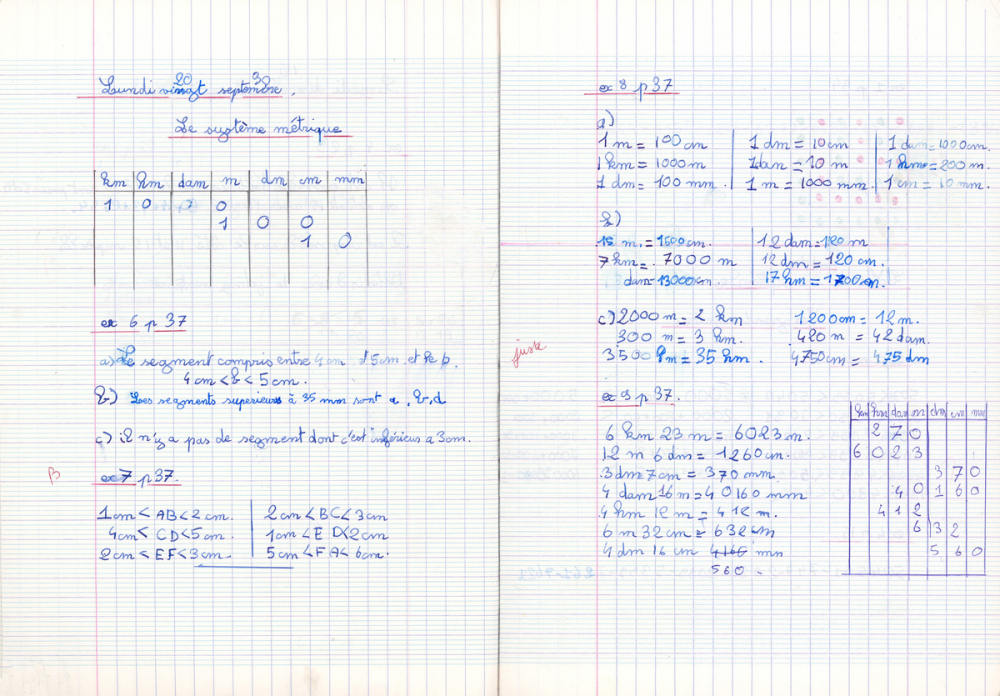 Lundi vingt septembre.
20 30
Le système métrique
km hm dam m dm cm mm
1 0 0 0
1 0 0
1 0
ex 6 p 37
a) Le segment compris entre 4 cm et 5 cm est le b.
4 cm < b < 5 cm.
b) Les segments superieurs à 35 mm sont a, b, d
c) il n'y a pas de segment dont c'est inférieur a 3 cm.
B
ex 7 p 37.
1 cm < AB < 2 cm. 2 cm < BC < 3 cm
4 cm < CD < 5 cm. 1 cm < ED < 2 cm
2 cm < EF < 3 cm. 5 cm < FA < 6 cm.
ex 8 p 37
a)
1 m = 100 cm 1 dm = 10 cm 1 dam = 1000 cm.
1 km = 1000 m 1 dam = 10 m 1 hm = 100 m.
1 dm = 100 mm. 1 m = 1000 mm. 1 cm = 10 mm.
b)
15 m. = 1500 cm. 12 dam = 120 m
7 km = 7000 m 12 dm = 120 cm.
dam = 13000 cm. 17 hm = 1700 m.
c) 2000 m = 2 km 1200 cm = 12 m.
300 m = 3 hm. 420 m = 42 dam.
juste
3500 m = 35 hm. 4750 cm = 475 dm
ex 9 p 37.
km hm dam m dm cm mm
2 7 0
6 0 2 3
3 7 0
4 0 1 6 0
4 1 2
6 3 2
5 6 0
6 km 23 m = 6023 m.
12 m 6 dm = 1260 cm.
3 dm 7 cm = 370 mm.
4 dam 16 m = 40160 mm
4 hm 12 m = 412 m.
6 m 32 cm = 632 cm
4 dm 16 cm 4166 mm
560